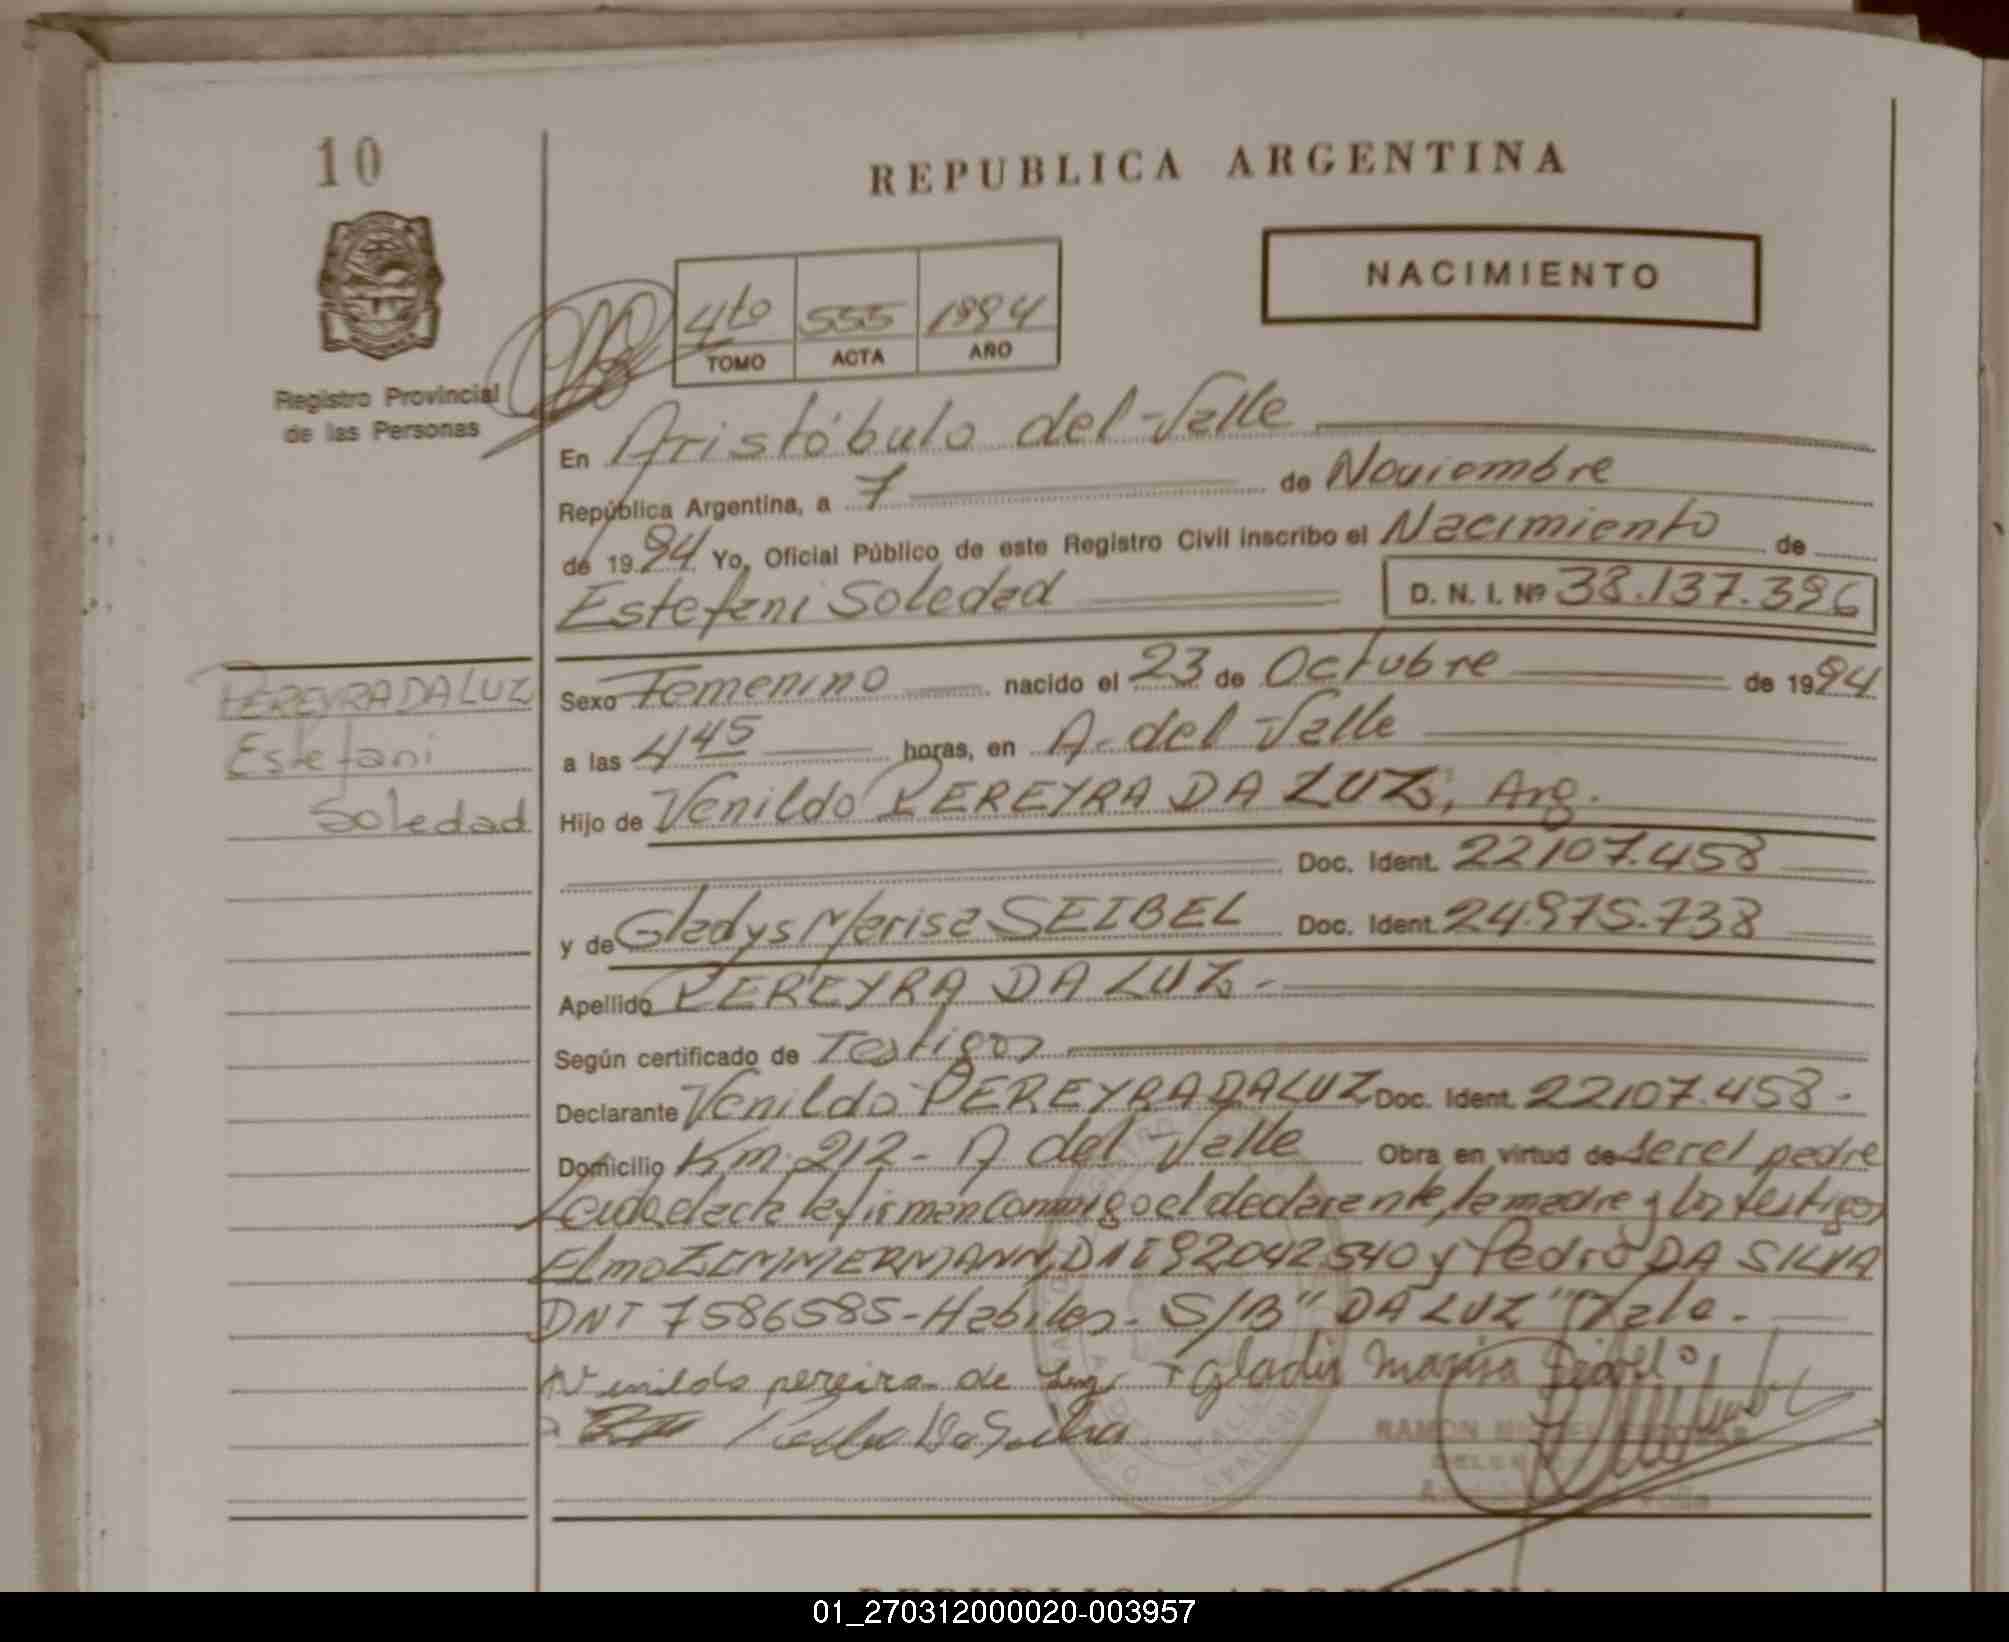 10
REPUBLICA ARGENTINA
NACIMIENTO
4to 555 1994
TOMO ACTA AÑO
Registro Provincial
de las Personas
En Aristóbulo del Valle
República Argentina, a 7 de Noviembre
de 1994 Yo, Oficial Público de este Registro Civil inscribo el Nacimiento de
Estefani Soledad D. N. I. Nº 38.137.396
PEREYRA DA LUZ
Estefani
Soledad
Sexo Femenino nacido el 23 de Octubre de 1994
a las 4 45 horas, en A. del Valle
Hijo de Venildo PEREYRA DA LUZ, Arg.
Doc. Ident. 22107.458
y de Gladys Marisa SEIBEL Doc. Ident. 24.975.738
Apellido PEREYRA DA LUZ -
Según certificado de Testigos
Declarante Venildo PEREYRA DA LUZ Doc. Ident. 22107.458 -
Domicilio Km. 212 - A del Valle Obra en virtud de ser el padre
Leida el acta la firman conmigo el declarante, la madre y los testigos
Elmo ZIMMERMANN, DNI 92042540 y Pedro DA SILVA
DNI 7586585 - Habiles. S/B "DA LUZ" Vale.-
pereira de Gladis Marisa
Da Silva
RAMON
REPUBLICA ARGENTINA
01_270312000020-003957